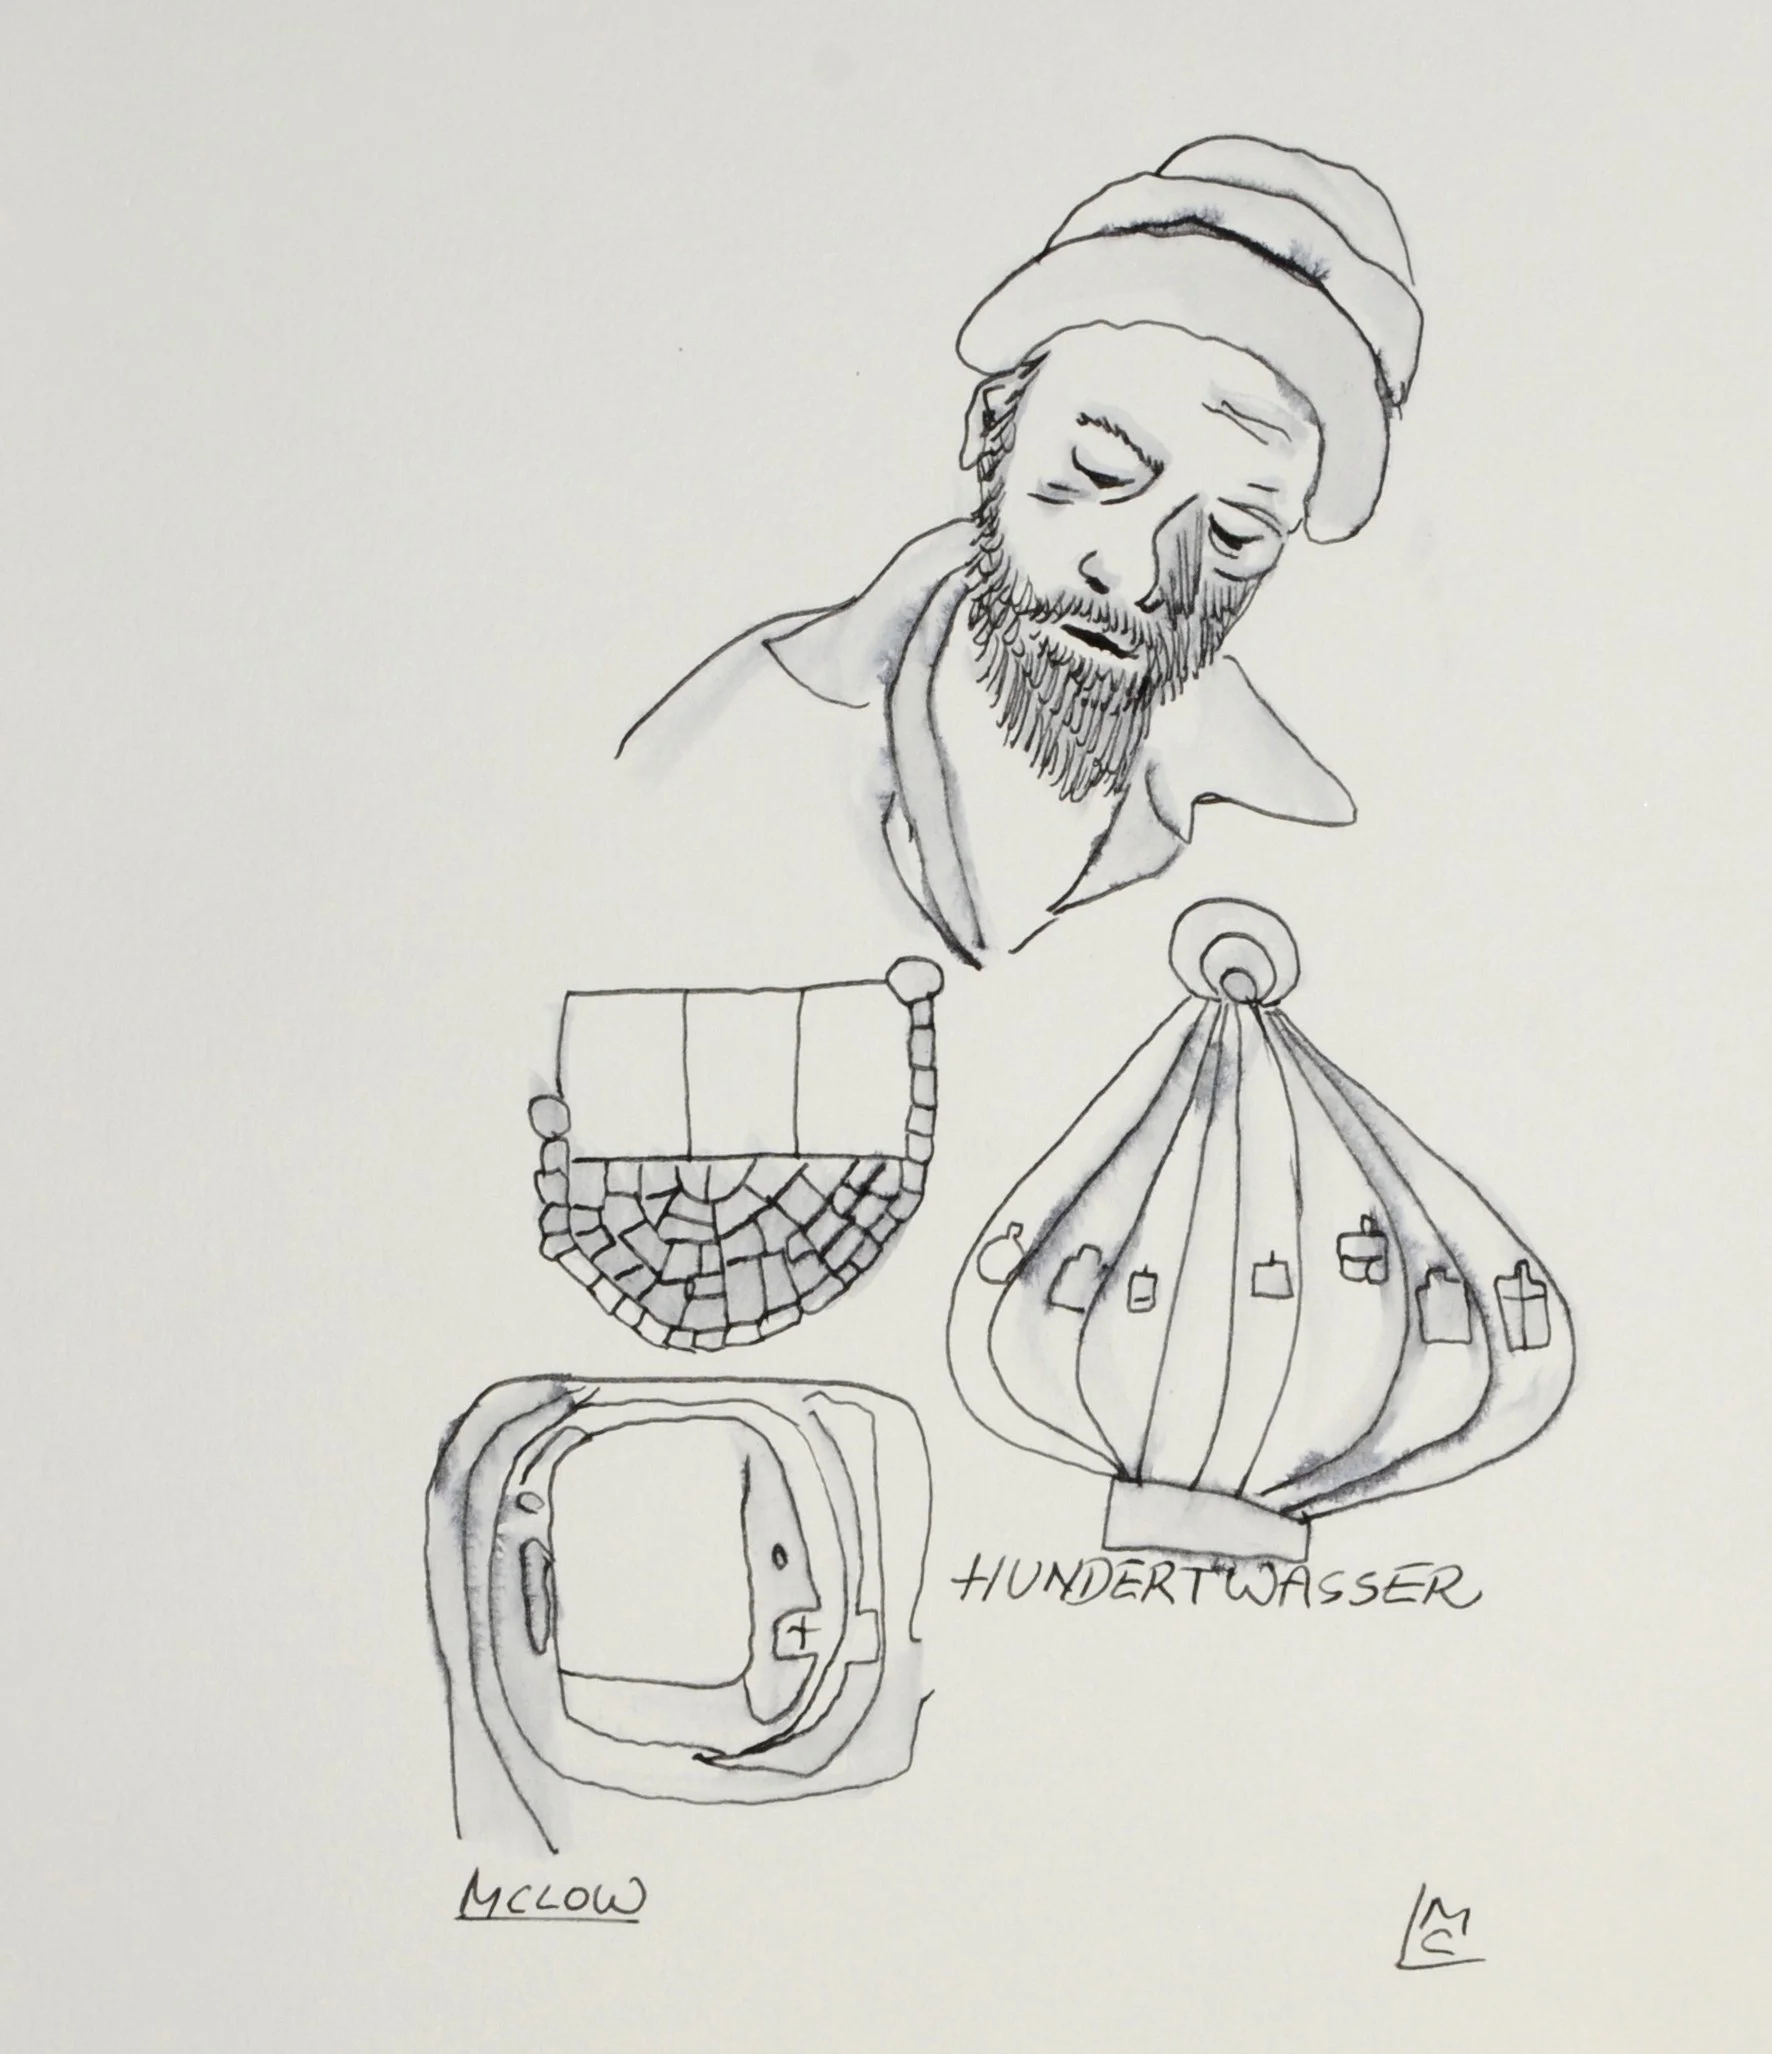 HUNDERTWASSER
MCLOW
M
C